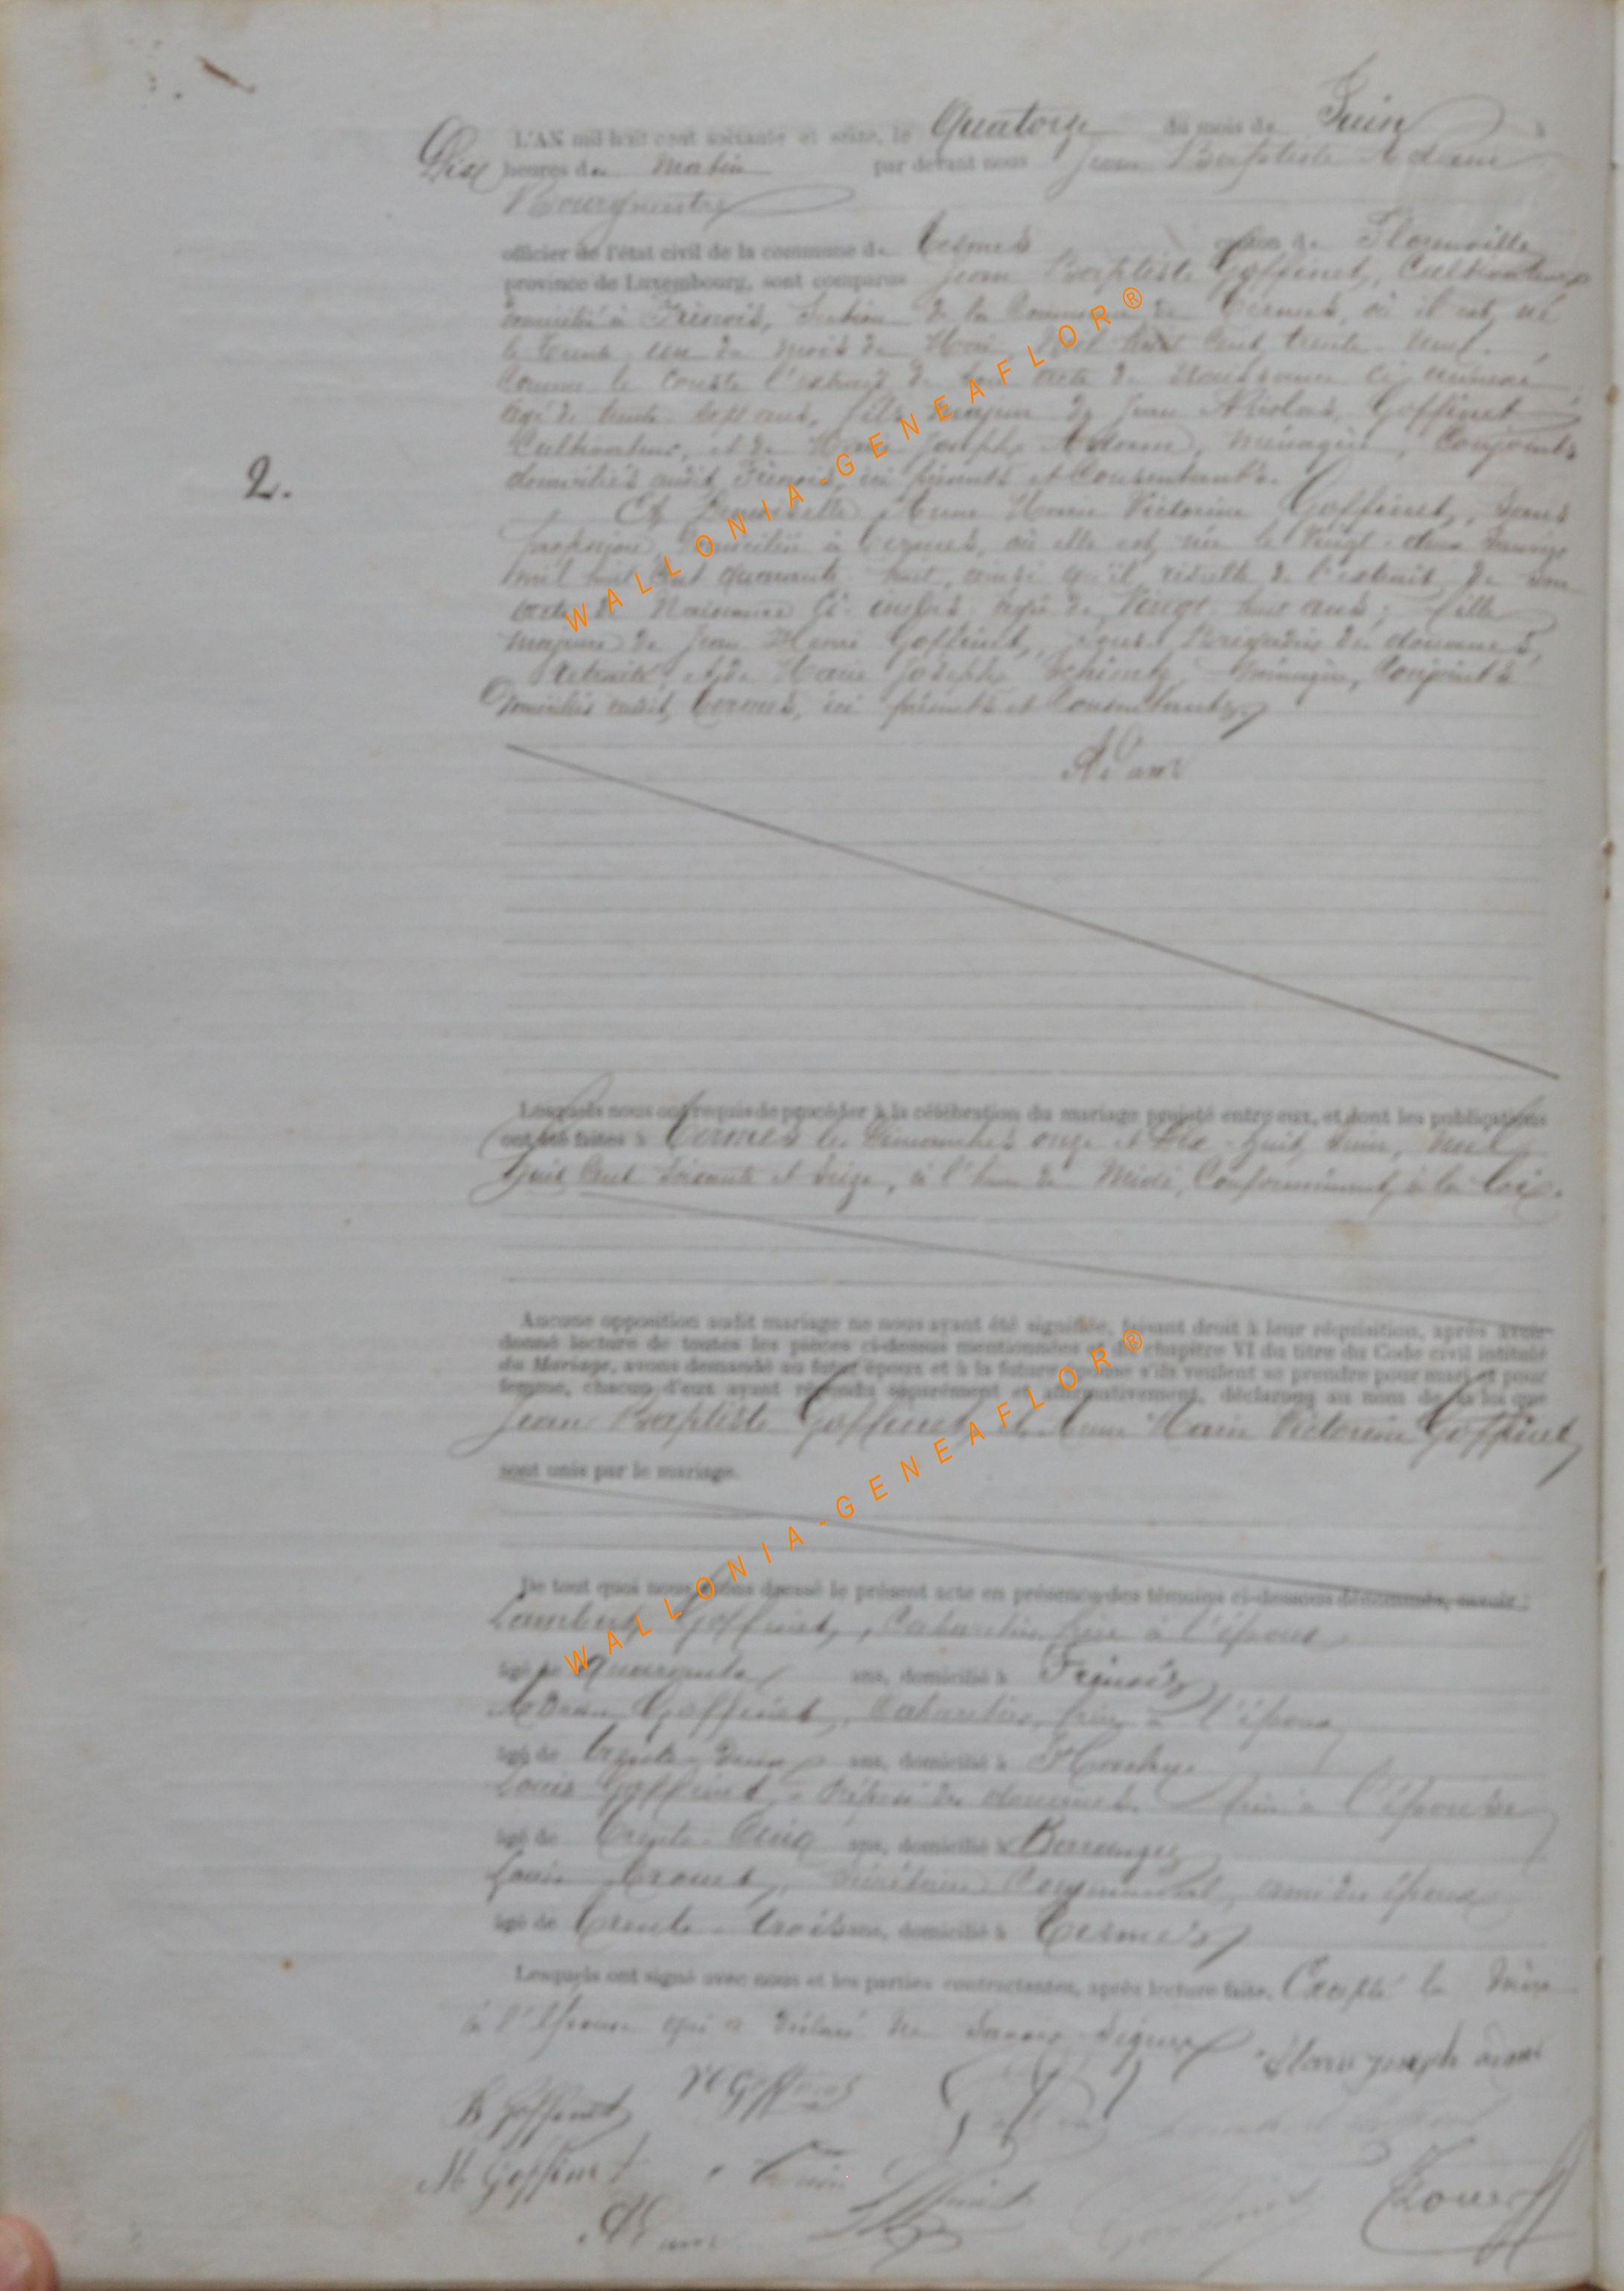 L'AN mil huit cent soixante et seize, le Quatorze du mois de Juin à
Dix heures du Matin par devant nous Jean Baptiste Adam
Bourgmestre
officier de l'état civil de la commune de Termes canton de Florenville
province de Luxembourg, sont comparus Jean Baptiste Goffinet, Cultivateur
domicilié à Frénois, Section de la Commune de Termes, où il est né
le trente-un du mois de Mai mil huit cent trente-neuf.
Comme le Conste l'extrait de son acte de Naissance ci annexé
âgé de trente-sept ans, fils majeur de Jean Nicolas Goffinet
Cultivateur, et de Marie Josephe Adam, ménagère, Conjoints
domiciliés audit Frénois, ici présents et Consentants.
2.
Et Demoiselle Anne Marie Victorine Goffinet, Sans
profession, domiciliée à Termes, où elle est née le Vingt-deux
mil huit Cent quarante-huit, ainsi qu'il résulte de l'extrait de son
acte de Naissance âgée de Vingt-huit ans; fille
majeure de Jean Henri Goffinet, Sous Brigadier des douanes,
Retraité, et de Marie Josephe ménagère, Conjoints
Domiciliés audit Termes, ici présents et Consentants
Adam
Lesquels nous ont requis de procéder à la célébration du mariage projeté entre eux, et dont les publications
ont été faites à Termes les Dimanches onze et Dix-huit Juin, mil
huit Cent Soixante et Seize, à l'heure de Midi, Conformément à la loi.
Aucune opposition audit mariage ne nous ayant été signifiée, faisant droit à leur réquisition, après avoir
donné lecture de toutes les pièces ci-dessus mentionnées et du chapitre VI du titre du Code civil intitulé
du Mariage, avons demandé au futur époux et à la future épouse s'ils veulent se prendre pour mari et pour
femme, chacun d'eux ayant répondu séparément et affirmativement, déclarons au nom de la loi que
Jean Baptiste Goffinet et Anne Marie Victorine Goffinet
sont unis par le mariage.
De tout quoi nous avons dressé le présent acte en présence des témoins ci-dessous dénommés, savoir:
Lambert Goffinet, Cabaretier, frère à l'époux
âgé de quarante ans, domicilié à Frénois
Goffinet, Cabaretier, frère à l'époux
âgé de trente-deux ans, domicilié à
Louis Goffinet, Préposé des douanes, frère à l'épouse
âgé de trente-Cinq ans, domicilié à
Louis Secrétaire Communal, ami des époux
âgé de trente-trois ans, domicilié à Termes
Lesquels ont signé avec nous et les parties contractantes, après lecture faite, Excepté la mère
à l'épouse qui a déclaré ne Savoir Signer
Marie Joseph adam
B Goffinet V Goffinet
M Goffinet
Adam
WALLONIA-GENEAFLOR®
WALLONIA-GENEAFLOR®